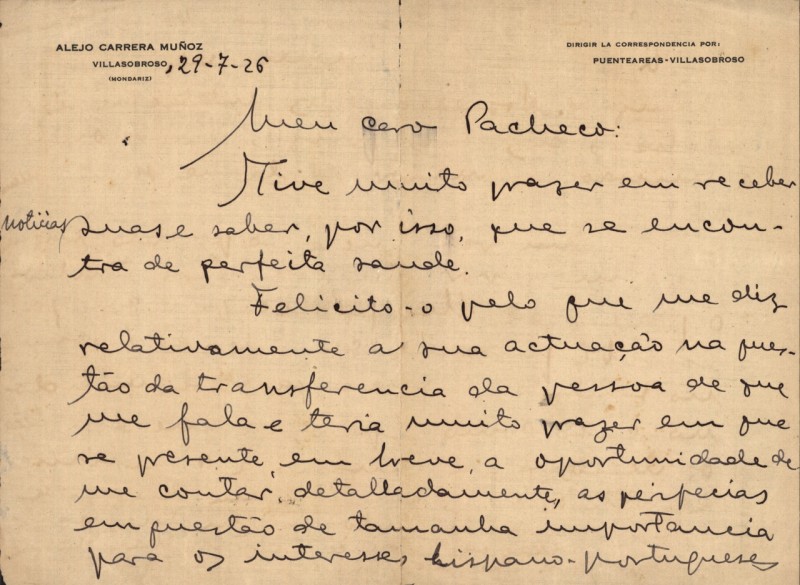 ALEJO CARRERA MUÑOZ
VILLASOBROSO, 29-7-26
(MONDARIZ)
DIRIGIR LA CORRESPONDENCIA POR:
PUENTEAREAS - VILLASOBROSO
Meu caro Pacheco:
Tive muito prazer em receber
noticias suas e saber, por isso, que se encon-
tra de perfeita saude.
Felicito-o pelo que me diz
relativamente a sua actuação na ques-
tão da transferencia da pessoa de que
me fala e teria muito prazer em que
se presente, em breve, a oportunidade de
me contar, detalladamente, as peripecias
em questão de tamanha importancia
para os interesses hispano-portugueses